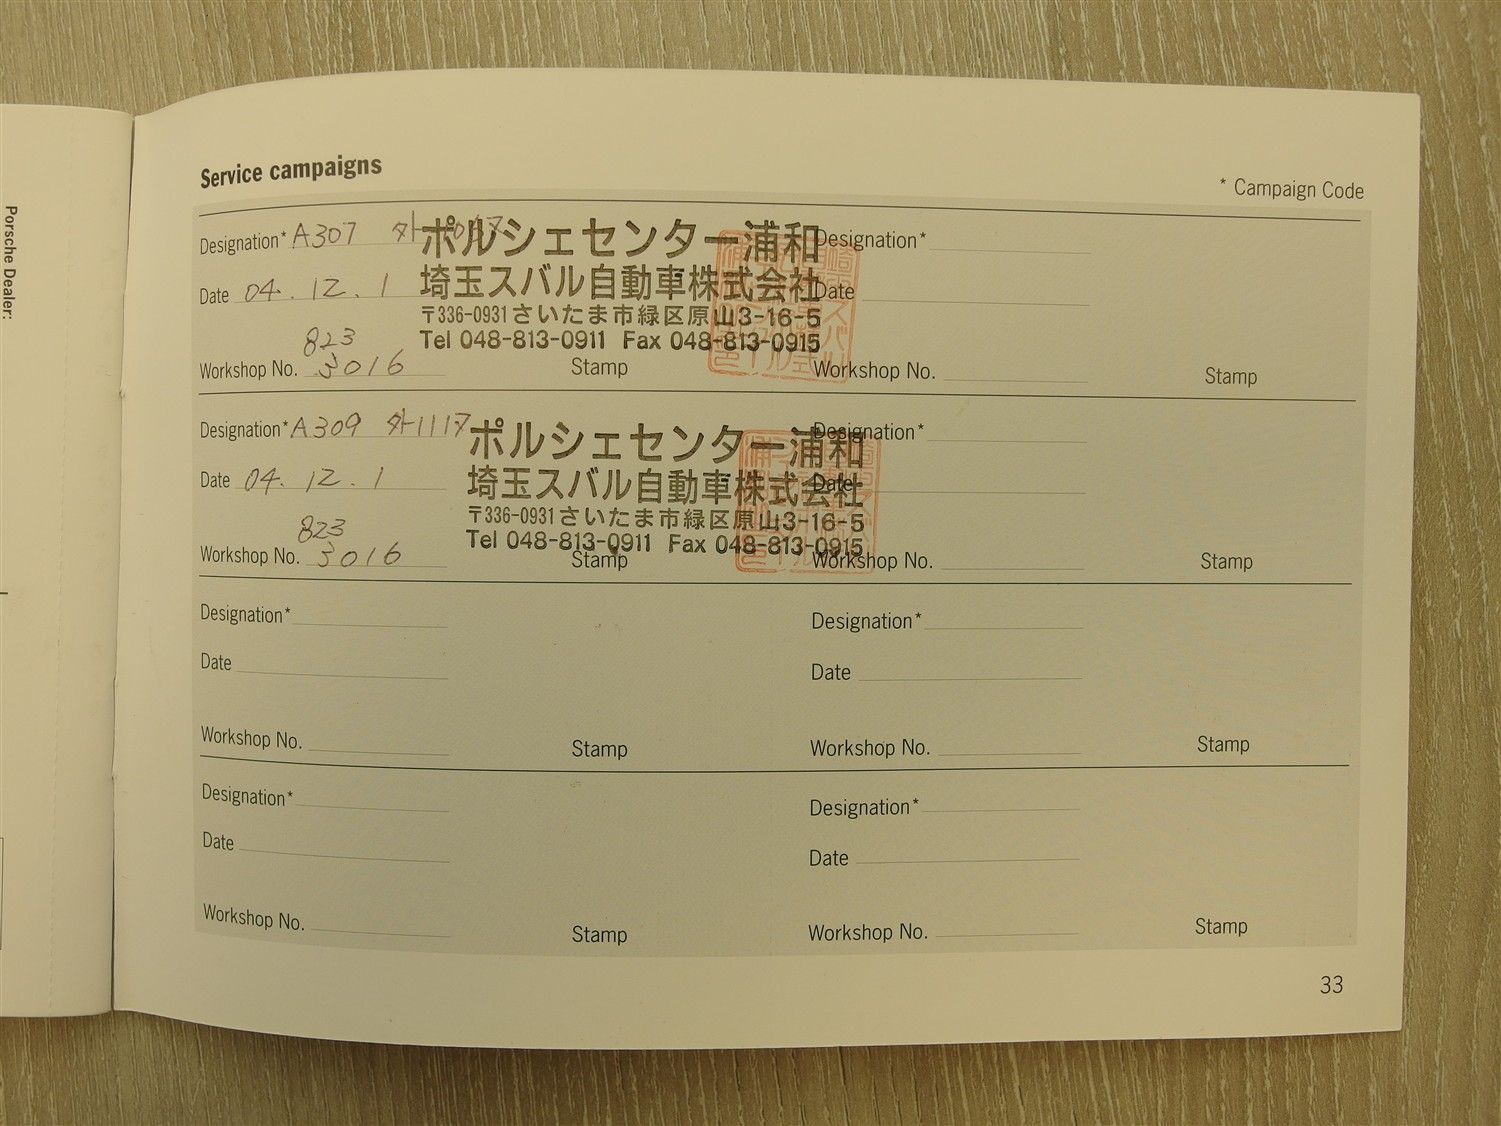 Porsche Dealer:
Service campaigns
* Campaign Code
Designation* A307 外
Date 04.12.1
823
Workshop No. 3016
ポルシェセンター浦和
埼玉スバル自動車株式会社
〒336-0931さいたま市緑区原山3-16-5
Tel 048-813-0911 Fax 048-813-0915
Stamp
Designation*
Date
Workshop No.
Stamp
Designation* A309 外1117
Date 04.12.1
823
Workshop No. 3016
ポルシェセンター浦和
埼玉スバル自動車株式会社
〒336-0931さいたま市緑区原山3-16-5
Tel 048-813-0911 Fax 048-813-0915
Stamp
Designation*
Date
Workshop No.
Stamp
Designation*
Date
Workshop No.
Stamp
Designation*
Date
Workshop No.
Stamp
Designation*
Date
Workshop No.
Stamp
Designation*
Date
Workshop No.
Stamp
33